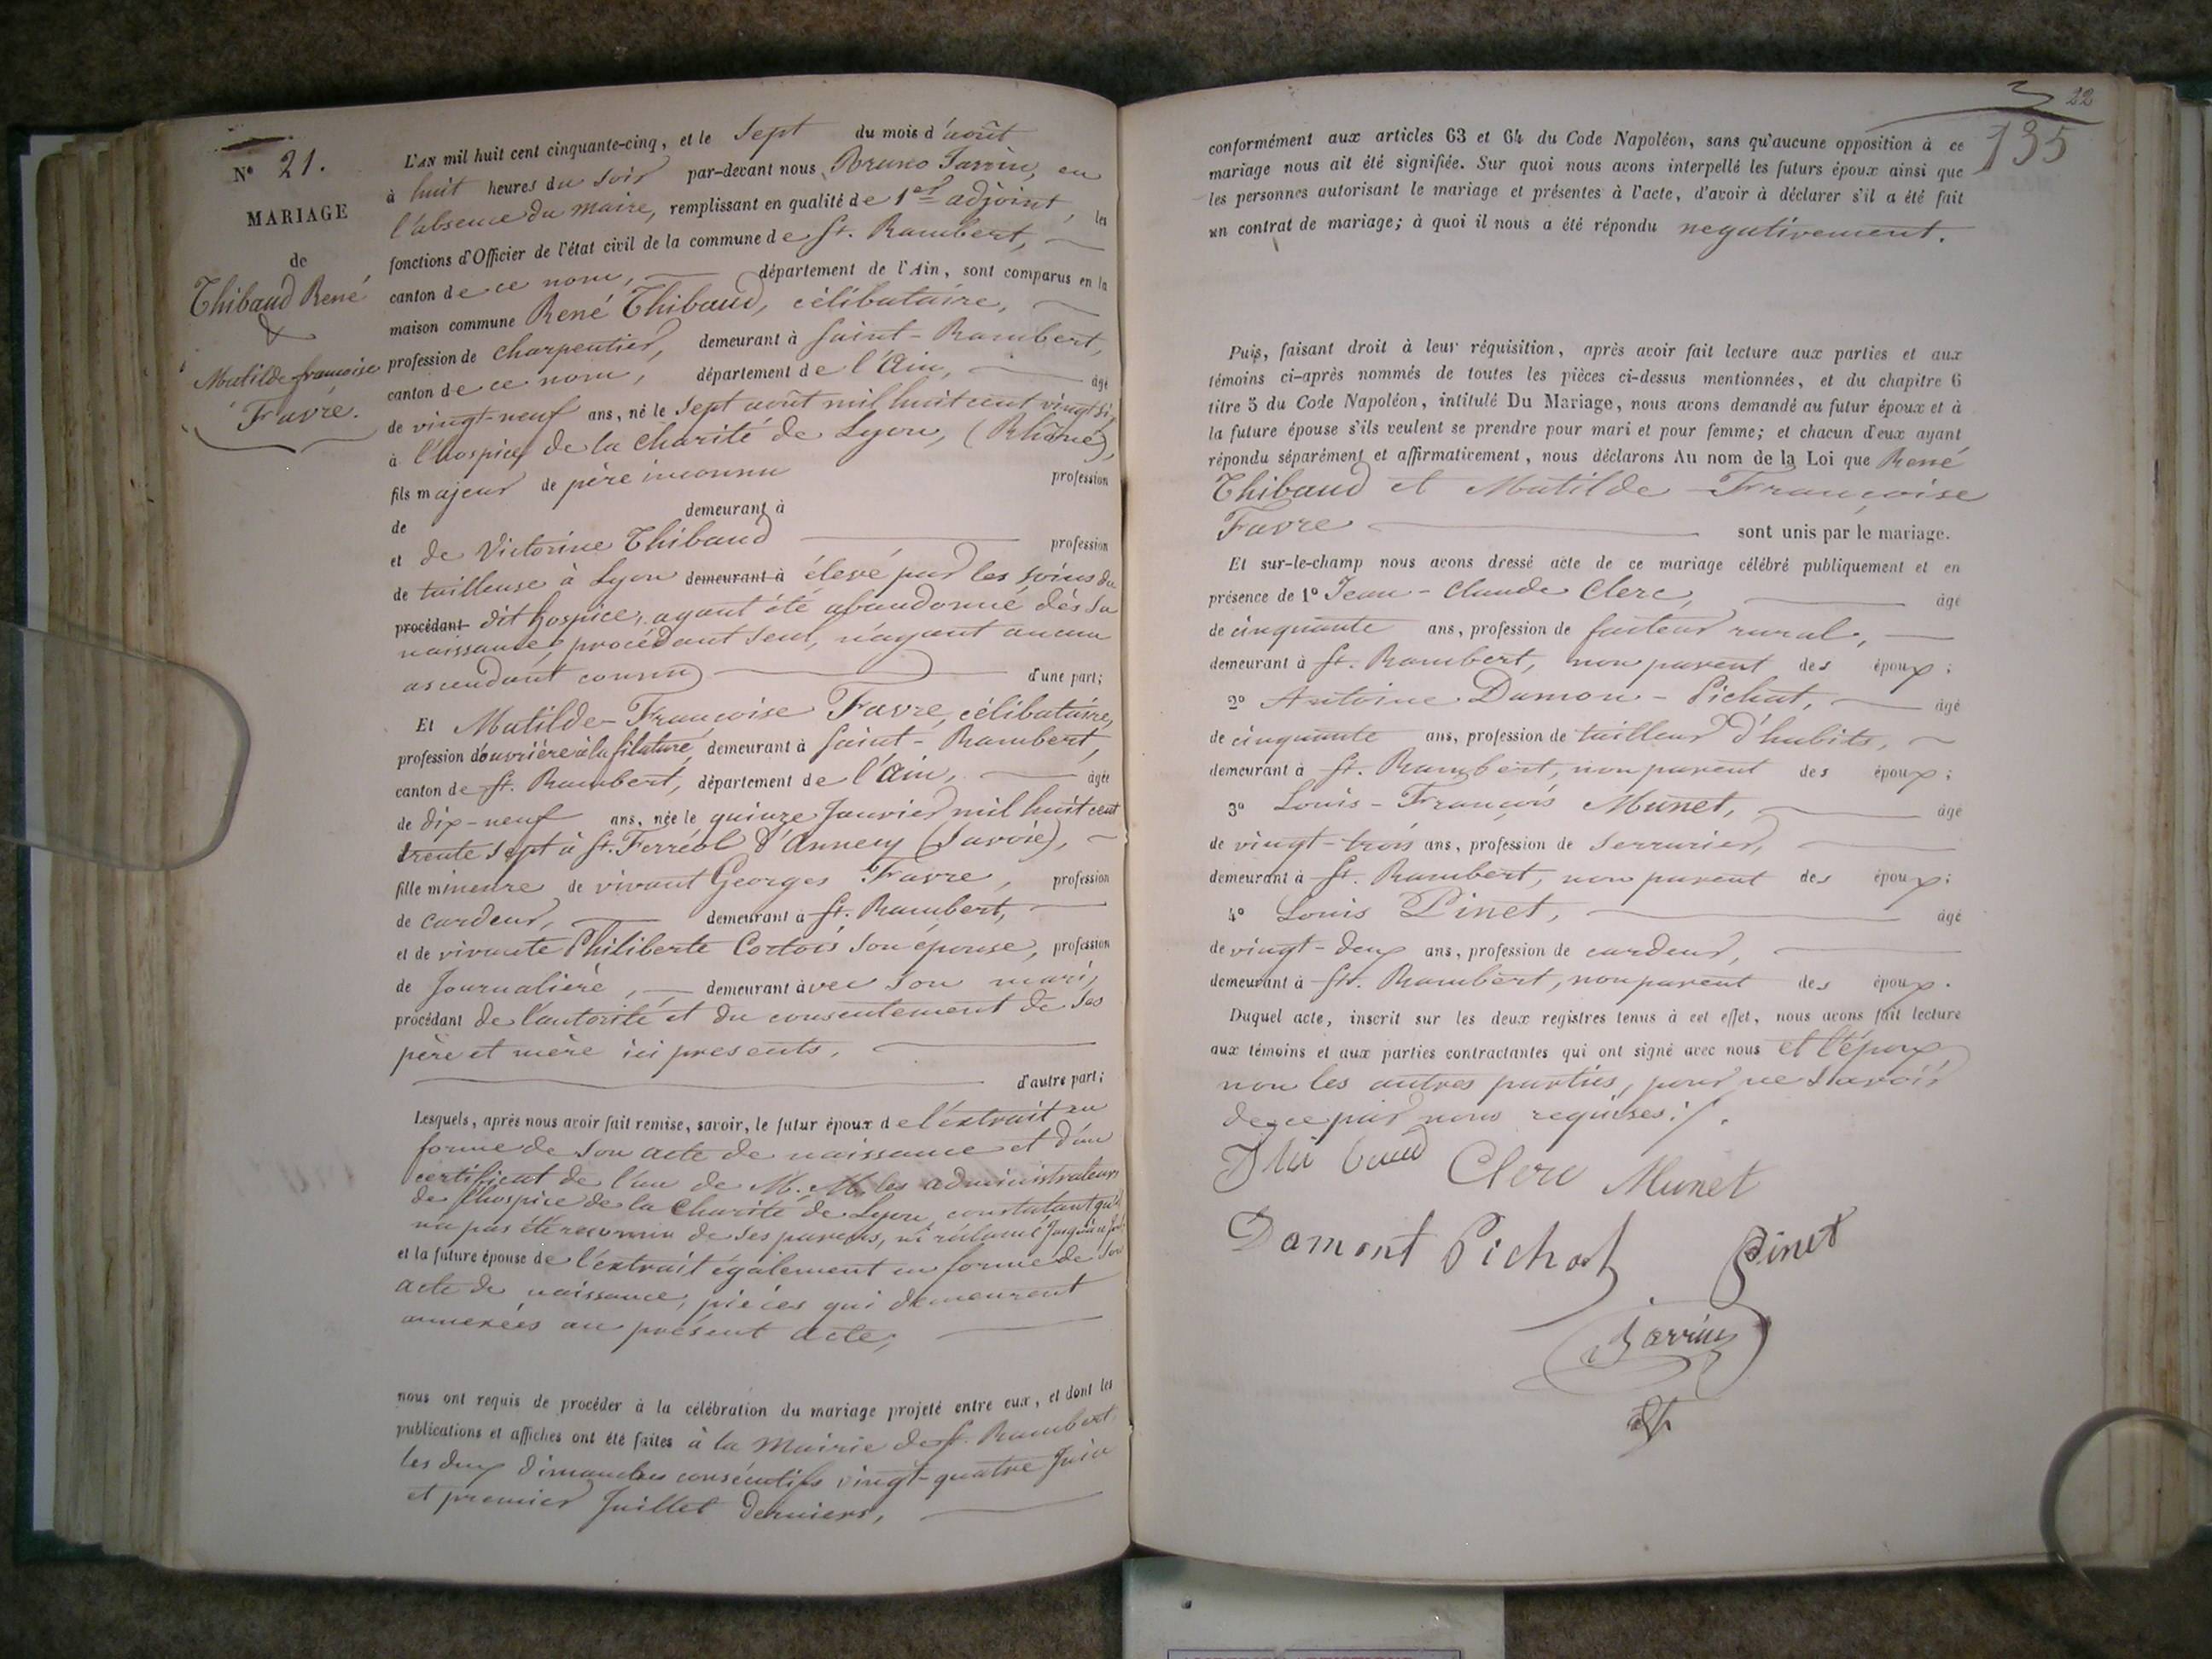 N° 21.
MARIAGE
de
Thibaud René
&
Matilde françoise
Favre.
L'AN mil huit cent cinquante-cinq, et le Sept du mois d'août
à huit heures du soir par-devant nous Bruno Jarrin, en
l'absence du maire, remplissant en qualité de 1er adjoint, les
fonctions d'Officier de l'état civil de la commune de St. Rambert,
canton de ce nom, département de l'Ain, sont comparus en la
maison commune René Thibaud, célibataire,
profession de charpentier, demeurant à Saint-Rambert,
canton de ce nom, département de l'Ain, âgé
de vingt-neuf ans, né le Sept août mil huit cent vingt six
à l'hospice de la Charité de Lyon, (Rhône),
fils majeur de père inconnu profession
de demeurant à
et de Victorine Thibaud profession
de tailleuse à Lyon demeurant à élevé par les soins du
procédant dit hospice, ayant été abandonné dès sa
naissance, procédant seul, n'ayant aucun
ascendant connu d'une part;
Et Matilde-Françoise Favre, célibataire,
profession d'ouvrière à la filature, demeurant à Saint-Rambert,
canton de St. Rambert, département de l'Ain, âgée
de dix-neuf ans, née le quinze Janvier mil huit cent
trente sept à St. Ferréol d'Annecy (Savoie),
fille mineure de vivant Georges Favre, profession
de cardeur, demeurant à St. Rambert,
et de vivante Philiberte Cortois son épouse, profession
de Journalière, demeurant avec son mari,
procédant de l'autorité et du consentement de ses
père et mère ici presents,
d'autre part;
Lesquels, après nous avoir fait remise, savoir, le futur époux de l'extrait en
forme de son acte de naissance et d'un
certificat de l'un de M. M. les administrateurs
de l'hospice de la Charité de Lyon, constatant qu'il
n'a pas été reconnu de ses parents, ni réclamé jusqu'à ce jour
et la future épouse de l'extrait également en forme de son
acte de naissance, pièces qui demeurent
annexées au présent acte,
nous ont requis de procéder à la célébration du mariage projeté entre eux, et dont les
publications et affiches ont été faites à la Mairie de St. Rambert
les deux Dimanches consécutifs vingt-quatre Juin
et premier Juillet derniers,
22
135
conformément aux articles 63 et 64 du Code Napoléon, sans qu'aucune opposition à ce
mariage nous ait été signifiée. Sur quoi nous avons interpellé les futurs époux ainsi que
les personnes autorisant le mariage et présentes à l'acte, d'avoir à déclarer s'il a été fait
un contrat de mariage; à quoi il nous a été répondu negativement.
Puis, faisant droit à leur réquisition, après avoir fait lecture aux parties et aux
témoins ci-après nommés de toutes les pièces ci-dessus mentionnées, et du chapitre 6
titre 5 du Code Napoléon, intitulé Du Mariage, nous avons demandé au futur époux et à
la future épouse s'ils veulent se prendre pour mari et pour femme; et chacun d'eux ayant
répondu séparément et affirmativement, nous déclarons Au nom de la Loi que René
Thibaud et Matilde-Françoise
Favre sont unis par le mariage.
Et sur-le-champ nous avons dressé acte de ce mariage célébré publiquement et en
présence de 1° Jean-Claude Clerc, âgé
de cinquante ans, profession de facteur rural,
demeurant à St. Rambert, non parent des époux;
2° Antoine Damon-Pichat, âgé
de cinquante ans, profession de tailleur d'habits,
demeurant à St. Rambert, non parent des époux;
3° Louis-François Munet, âgé
de vingt-trois ans, profession de serrurier,
demeurant à St. Rambert, non parent des époux;
4° Louis Pinet, âgé
de vingt-deux ans, profession de cardeur,
demeurant à St. Rambert, non parent des époux.
Duquel acte, inscrit sur les deux registres tenus à cet effet, nous avons fait lecture
aux témoins et aux parties contractantes qui ont signé avec nous et l'époux,
non les autres parties, pour ne savoir
de ce par nous requises ./.
Thibaud Clerc Munet
Damont Pichat Pinet
Jarrin